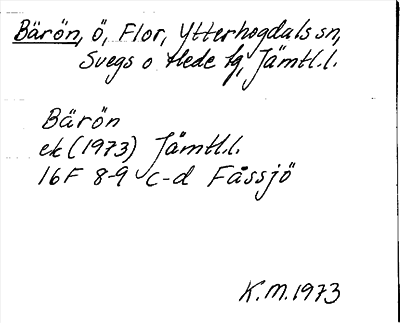 Bärön, ö, Flor, Ytterhogdals sn,
Svegs o Hede tg, Jämtl.l.
Bärön
ek (1973) Jämtl.l.
16F 8-9 c-d Fåssjö
K.M. 1973